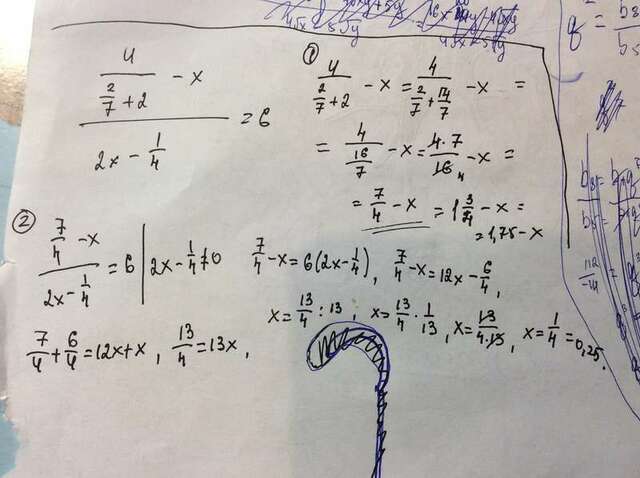 (4/(2/7 + 2) - x)/(2x - 1/4) = 6
① 4/(2/7 + 2) - x = 4/(2/7 + 14/7) - x =
= 4/(16/7) - x = 4·7/16 - x =
= 7/4 - x = 1 3/4 - x =
= 1,75 - x
② (7/4 - x)/(2x - 1/4) = 6 | 2x - 1/4 ≠ 0 7/4 - x = 6(2x - 1/4), 7/4 - x = 12x - 6/4,
7/4 + 6/4 = 12x + x, 13/4 = 13x, x = 13/4 : 13, x = 13/4 · 1/13, x = 13/4·13, x = 1/4 = 0,25.